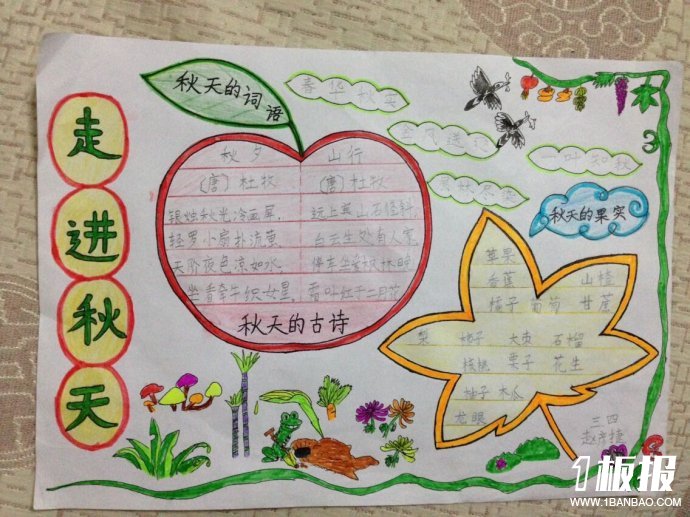 走进秋天
秋天的词语
春华秋实
金风送爽
一叶知秋
秋夕
〔唐〕杜牧
银烛秋光冷画屏,
轻罗小扇扑流萤,
天阶夜色凉如水,
坐看牵牛织女星。
山行
〔唐〕杜牧
远上寒山石径斜,
白云生处有人家,
停车坐爱枫林晚,
霜叶红于二月花
秋天的古诗
秋天的果实
苹果
香蕉 山楂
橘子 葡萄 甘蔗
梨 柿子 大枣 石榴
核桃 栗子 花生
柚子 木瓜
龙眼
三四
1板报
WWW.1BANBAO.COM